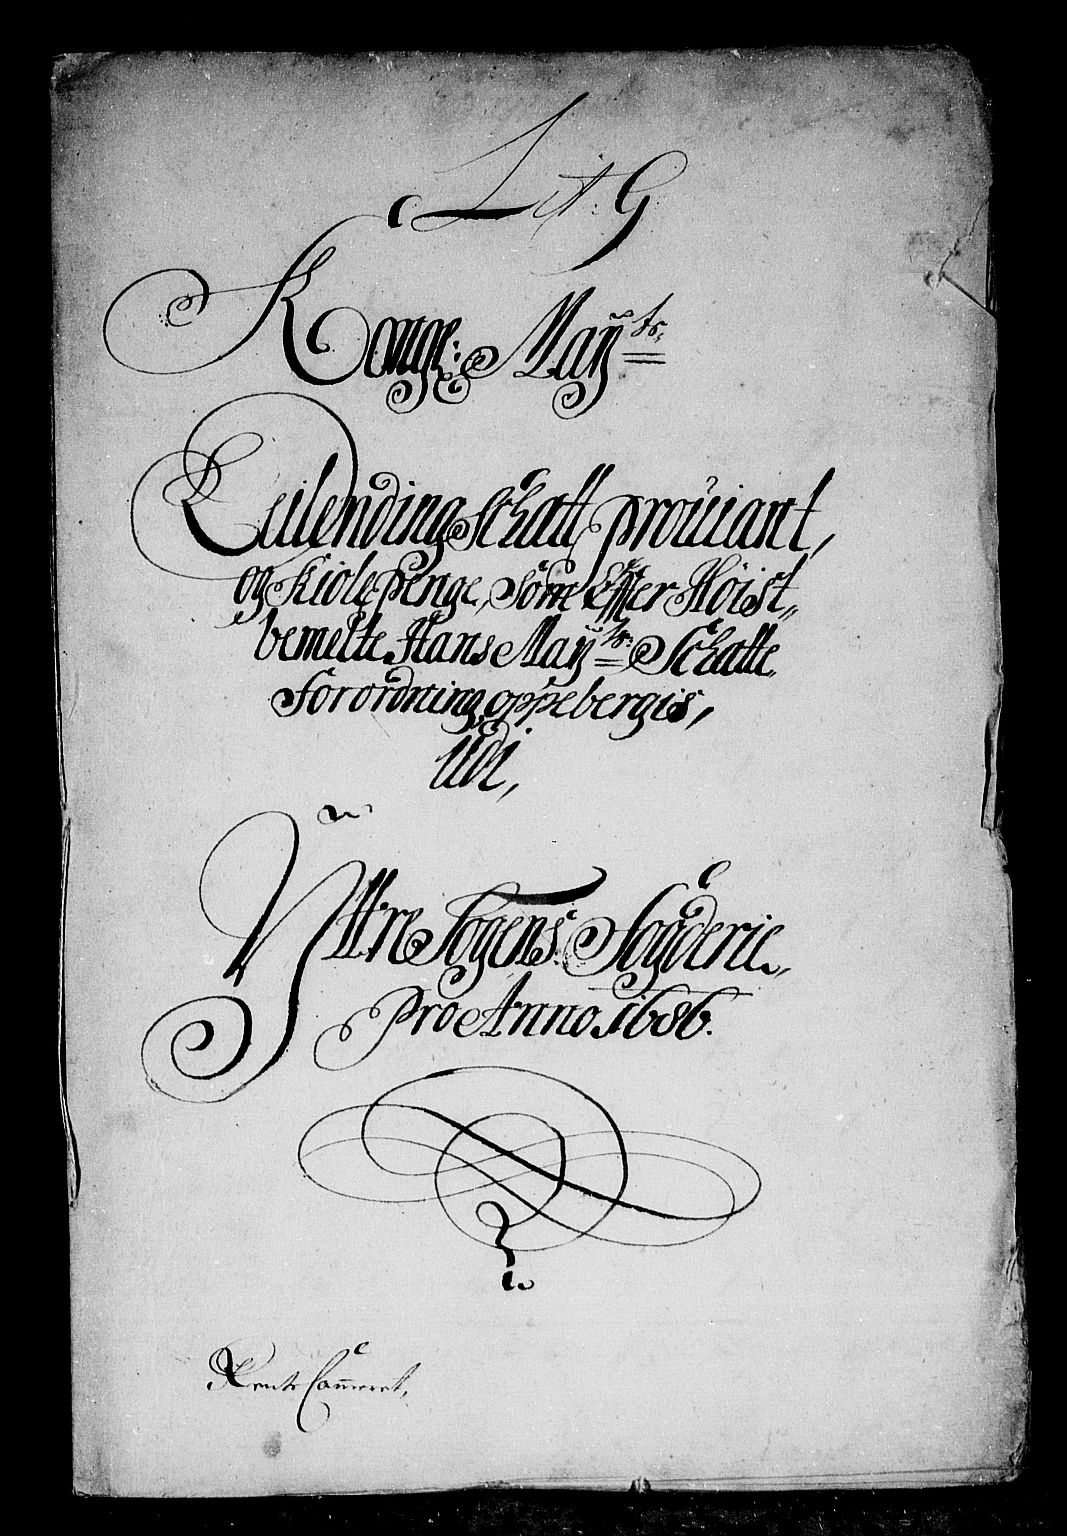 Lit: G
Konge: Maÿ^ts
Leilending Schatt, proviant,
og Kiole Penge, Som Effter Høist-
bemelte Hans Maÿ^ts: Schatte
Forordning oppebergis,
Udi,
Ÿttre Sogens Fogderie,
Pro Anno 1686.
Rente Cam̄eret,